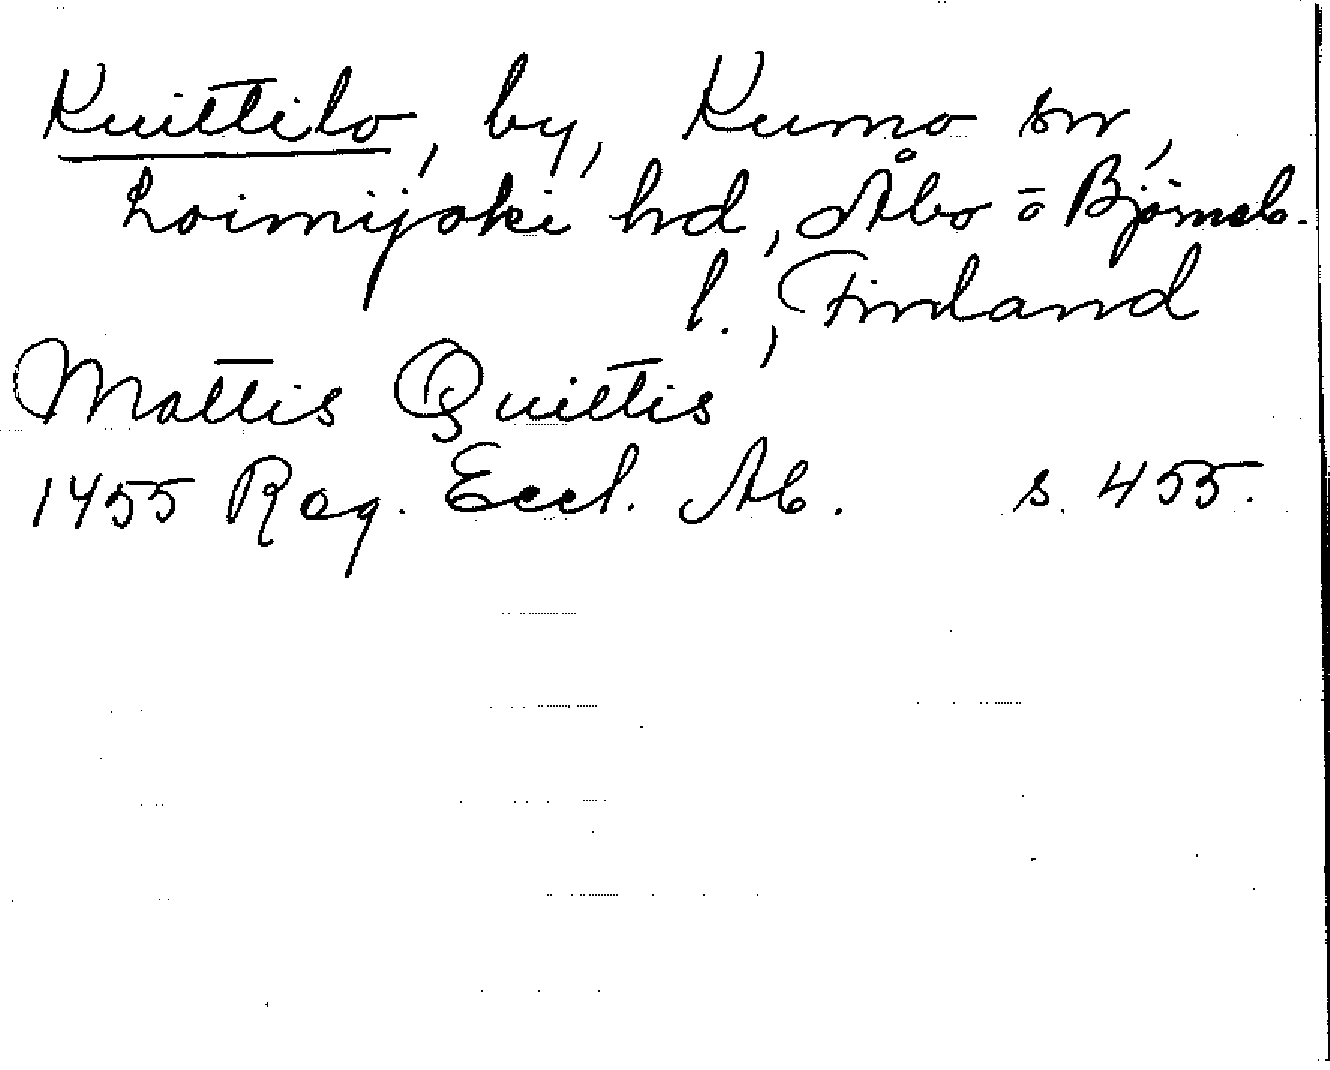 Kuittilo, by, Kumo sn,
Loimijoki hd, Åbo o Björneb.
l., Finland
Mattis Quittis
1455 Reg. Eccl. Ab. s. 455.